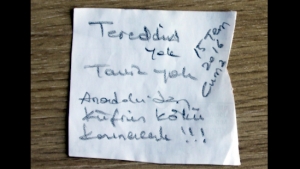 Tereddüd
yok
Taviz yok
Anadolu'dan
Küfrün kökü
kazınacak !!!
15 Tem
2016
Cuma